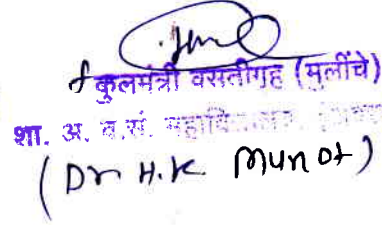 कुलमंत्री वसतीगृह (मुलींचे)
शा. अ. व.सं. महावि
(Dr. H.K. Munot)